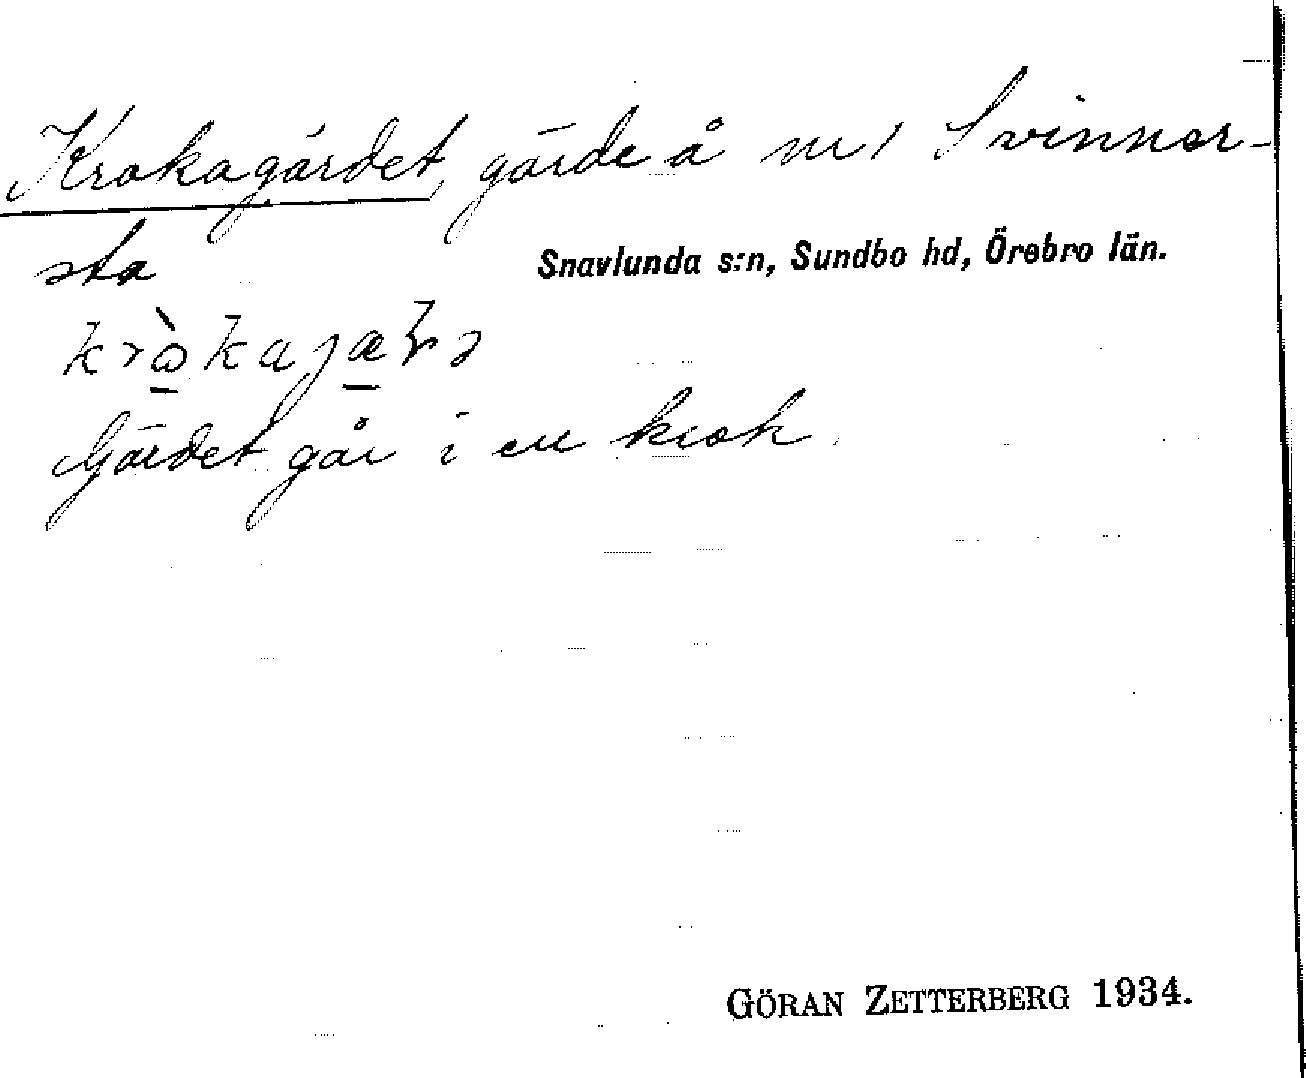 Krokagärdet, gärde å nr 1 Svinner-
sta
Snavlunda s:n, Sundbo hd, Örebro län.
Gärdet går i en krok.
GÖRAN ZETTERBERG 1934.